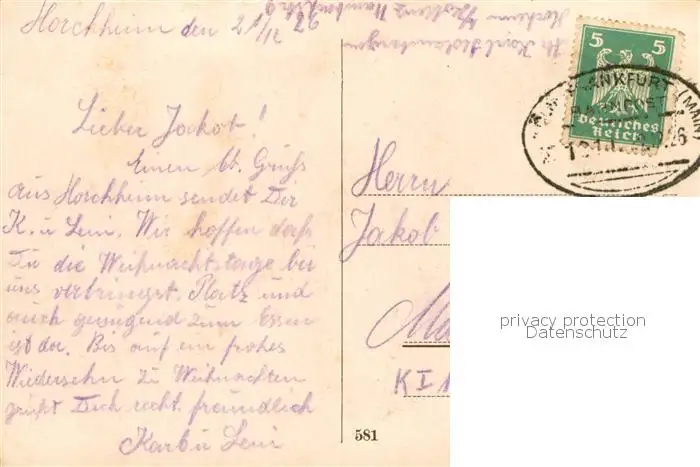 Horchheim den 21/12 26
Lieber Jakob!
Einen bt. Gruß
aus Horchheim sendet Dir
K. u Leni. Wir hoffen daß
Du die Weihnachtstage bei
uns verbringst. Platz und
auch genügend zum Essen
ist da. Bis auf ein frohes
Wiedersehn zu Weihnachten
grüßt Dich recht freundlich
Karl u Leni
Horchheim
Karl
5 5
Deutsches
Reich
FRANKFURT (MAIN)
BAHNPOST
26
Herrn
Jakob
K I
581
privacy protection
Datenschutz